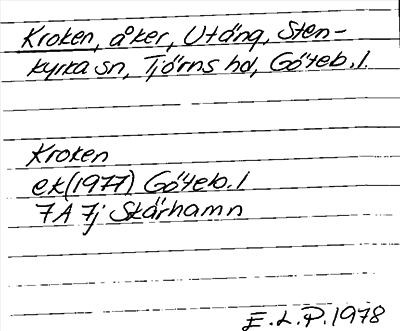 Kroken, åker, Utäng, Sten-
kyrka sn, Tjörns hd, Göteb. l.
Kroken
ek(1977) Göteb. l
7A 7j Skärhamn
E.L.P. 1978